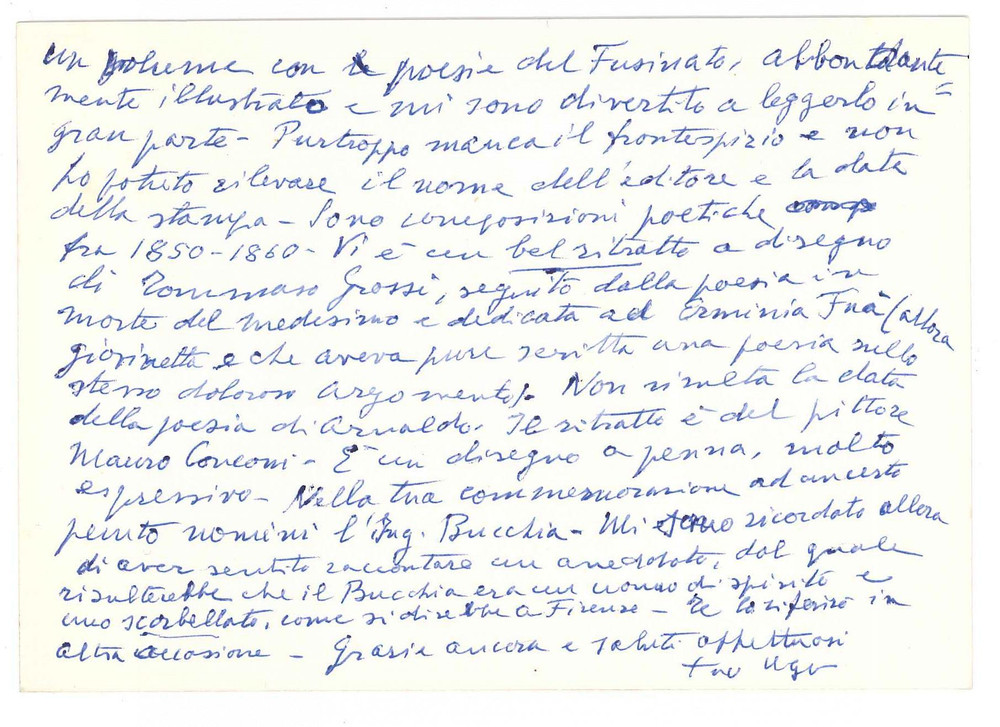 un volume con le poesie del Fusinato, abbondante=
mente illustrato e mi sono divertito a leggerlo in
gran parte - Purtroppo manca il frontespizio e non
ho potuto rilevare il nome dell'editore e la data
della stampa - Sono composizioni poetiche
fra 1850-1860 - Vi è un bel ritratto a disegno
di Tommaso Grossi, seguito dalla poesia in
morte del medesimo e dedicata ad Erminia Fuà (allora
giovinetta e che aveva pure scritta una poesia sullo
stesso doloroso argomento). Non risulta la data
della poesia di Arnaldo. Il ritratto è del pittore
Mauro Conconi - È un disegno a penna, molto
espressivo - Nella tua commemorazione ad un certo
punto nomini l'Ing. Bucchia - Mi sono ricordato allora
di aver sentito raccontare un aneddoto, dal quale
risulterebbe che il Bucchia era un uomo di spirito e
uno scorbellato, come si direbbe a Firenze - Te lo riferirò in
altra occasione - Grazie ancora e saluti affettuosi
tuo Ugo